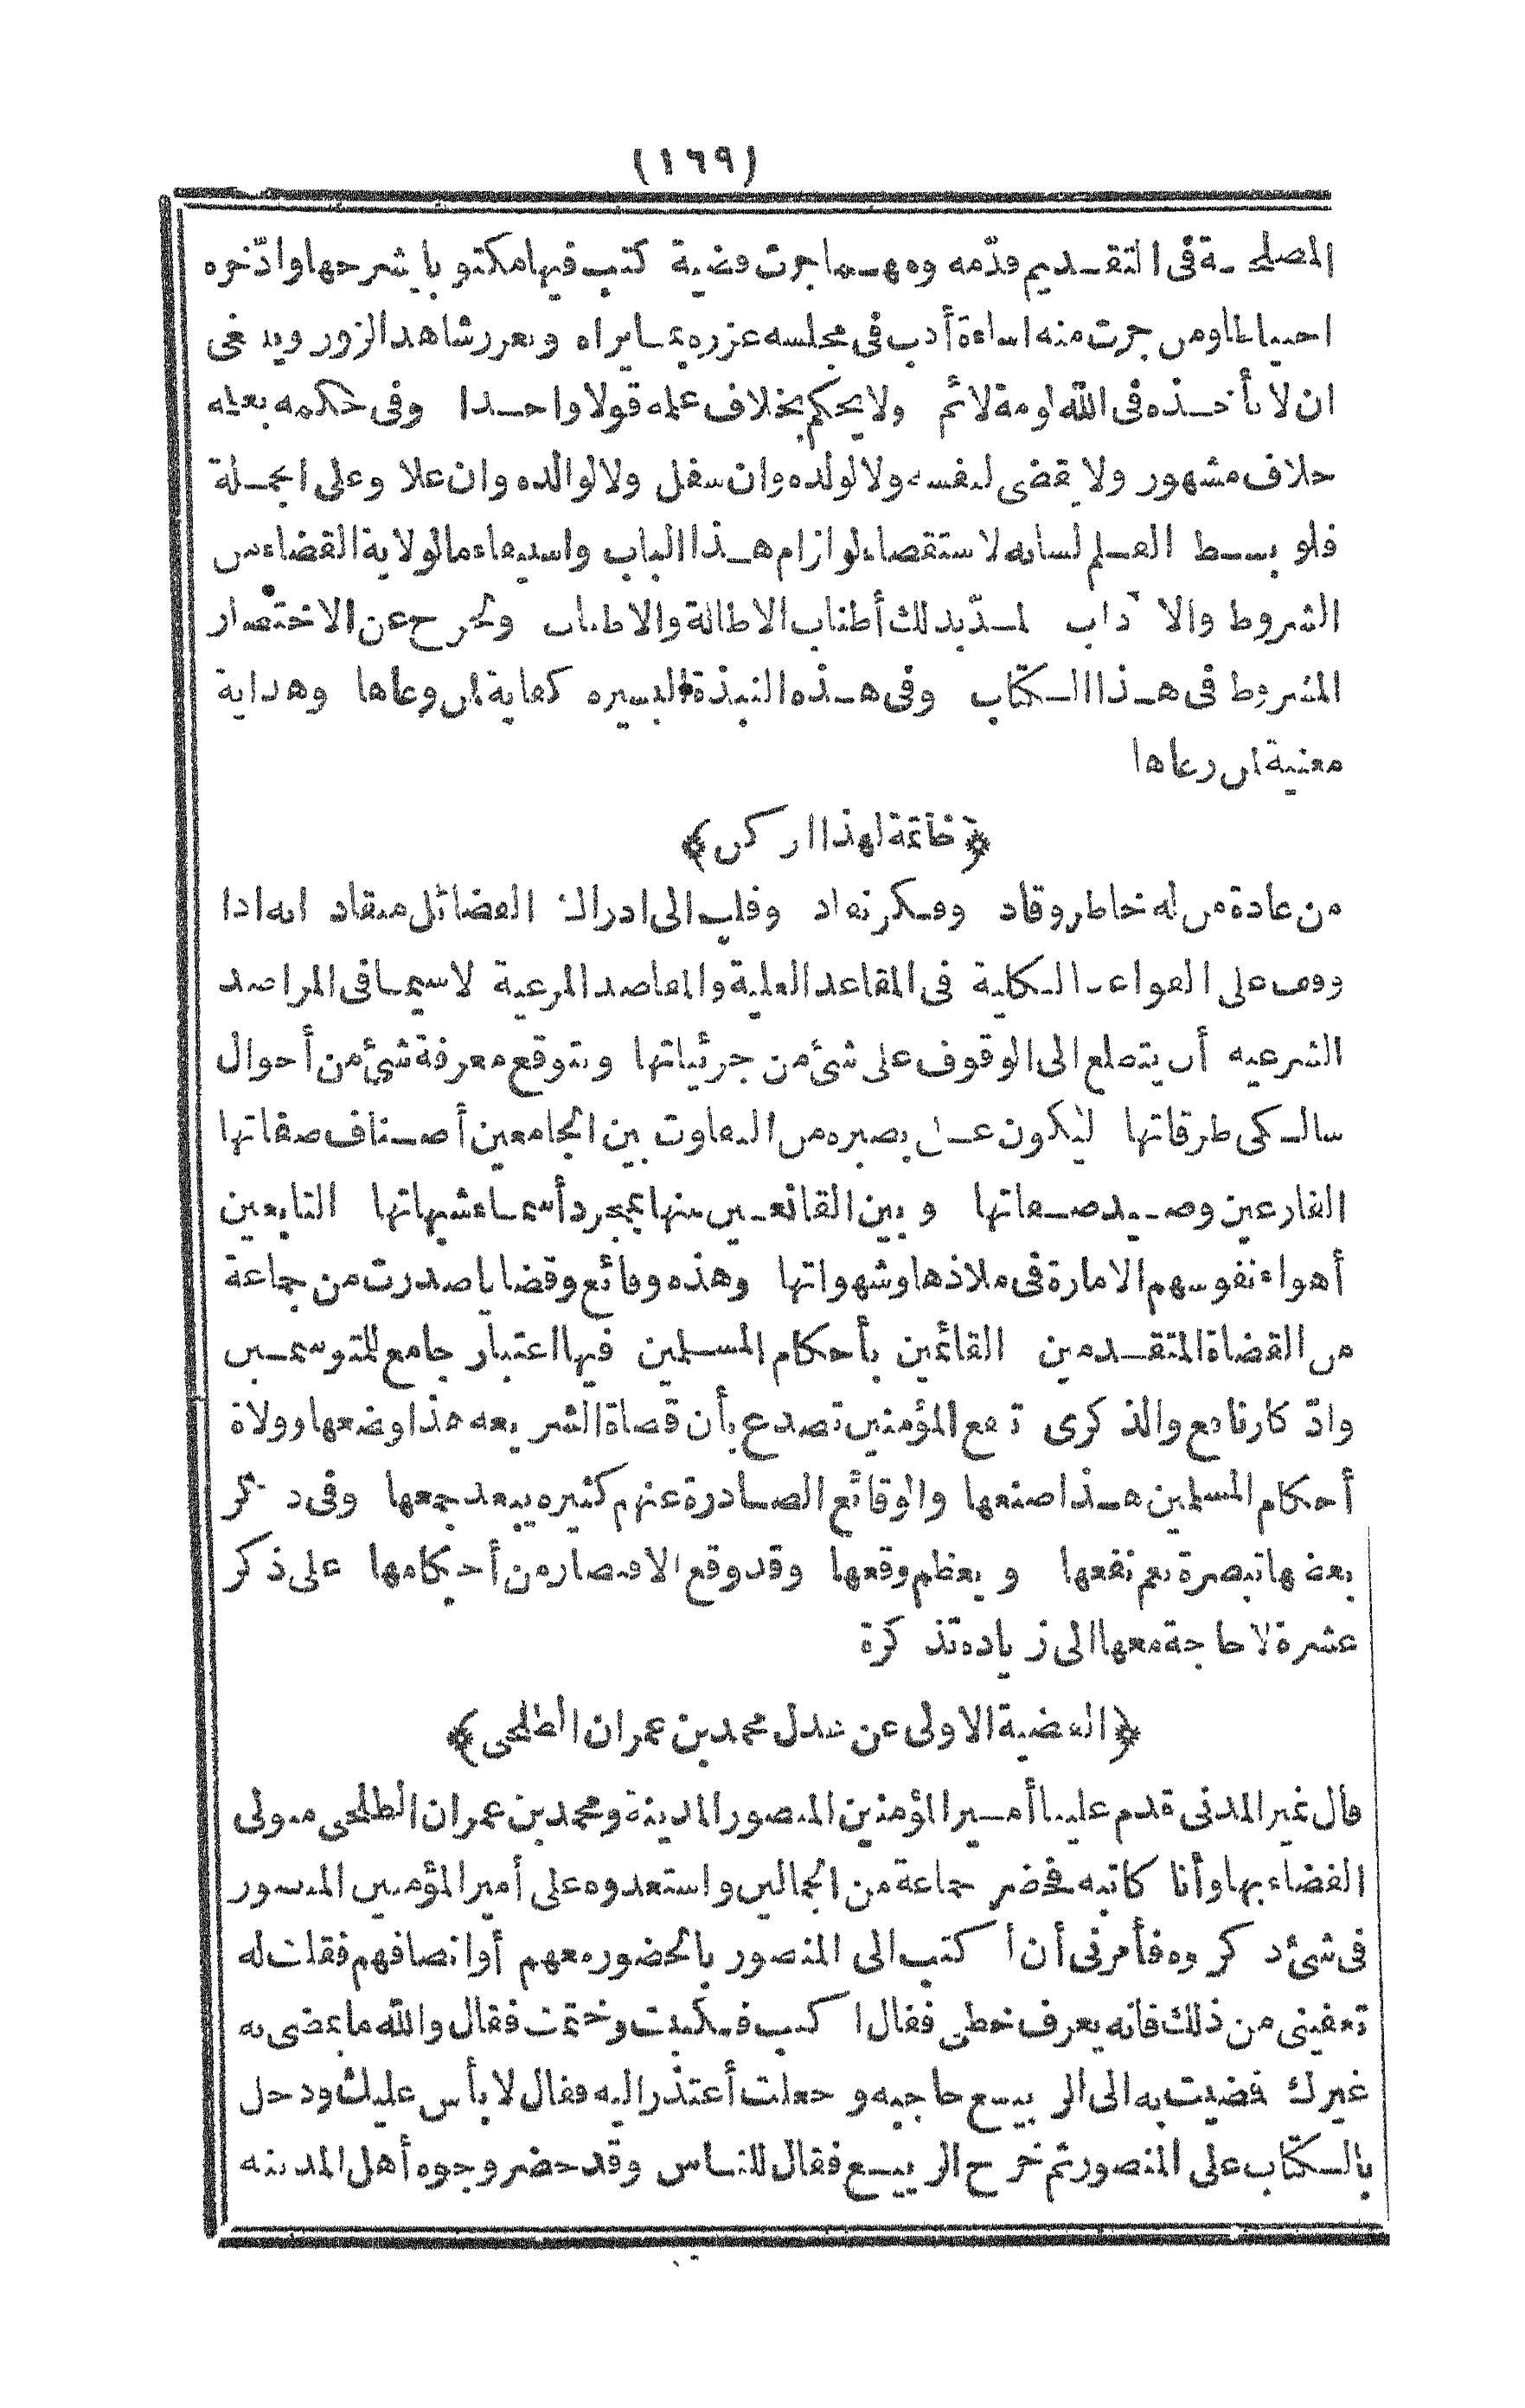 (١٦٩)
المصلحة فى التقديم قدّمه ومهما جرت قضية كتب فيها مكتوبا يشرحها وادّخره
احتياطا ومن جرت منه اساءة أدب فى مجلسه عزره بما يراه ويعزر شاهد الزور وينبغى
ان لا تأخذه فى الله لومة لائم ولا يحكم بخلاف علمه قولا واحدا وفى حكمه بعلمه
خلاف مشهور ولا يقضى لنفسه ولا لولده وان سفل ولا لوالده وان علا وعلى الجملة
فلو بسط القلم لسانه لاستقصاء لوازم هذا الباب واستيفاء ما لولاية القضاء من
الشروط والآداب لمدّ بذلك أطناب الاطالة والاطناب ولخرج عن الاختصار
المشروط فى هذا الكتاب وفى هذه النبذة اليسيره كفاية لمن وعاها وهداية
مغنية لمن رعاها
﴿خاتمة لهذا الركن﴾
من عادة من له خاطر وقاد وفكر نقاد وقلب الى ادراك الفضائل منقاد انه اذا
وقف على القواعد الكلية فى المقاعد العلية والمقاصد المرعية لا سيما فى المراصد
الشرعيه أن يتطلع الى الوقوف على شئ من جزئياتها ويتوقع معرفة شئ من أحوال
سالكى طرقاتها ليكون على بصيره من التفاوت بين الجامعين أصناف صفاتها
الفارعين وصيد صفاتها وبين القانعين منها بمجرد أسماء شبهاتها التابعين
أهواء نفوسهم الامارة فى ملاذها وشهواتها وهذه وقائع وقضايا صدرت من جماعة
من القضاة المتقدمين القائمين بأحكام المسلمين فيها اعتبار جامع للمتوسمين
وادّكار نافع والذكرى تنفع المؤمنين تصدع بأن قضاة الشريعه هذا وضعها وولاة
أحكام المسلمين هذا صنعها والوقائع الصادرة عنهم كثيره يبعد جمعها وفى ذكر
بعضها تبصرة يعم نفعها ويعظم وقعها وقد وقع الاقتصار من أحكامها على ذكر
عشرة لا حاجة معها الى زياده تذكرة
﴿القضية الاولى عن عدل محمد بن عمران الطلحى﴾
قال نمير المدنى قدم علينا أمير المؤمنين المنصور المدينة ومحمد بن عمران الطلحى متولى
القضاء بها وأنا كاتبه فحضر جماعة من الجمالين واستعدوه على أمير المؤمنين المنصور
فى شئ ذكروه فأمرنى أن أكتب الى المنصور بالحضور معهم أو انصافهم فقلت له
تعفينى من ذلك فانه يعرف خطى فقال اكتب فكتبت وختمت فقال والله ما يمضى به
غيرك فضيت به الى الربيع حاجبه وجعلت أعتذر اليه فقال لا بأس عليك ودخل
بالكتاب على المنصور ثم خرج الربيع فقال للناس وقد حضر وجوه أهل المدينه